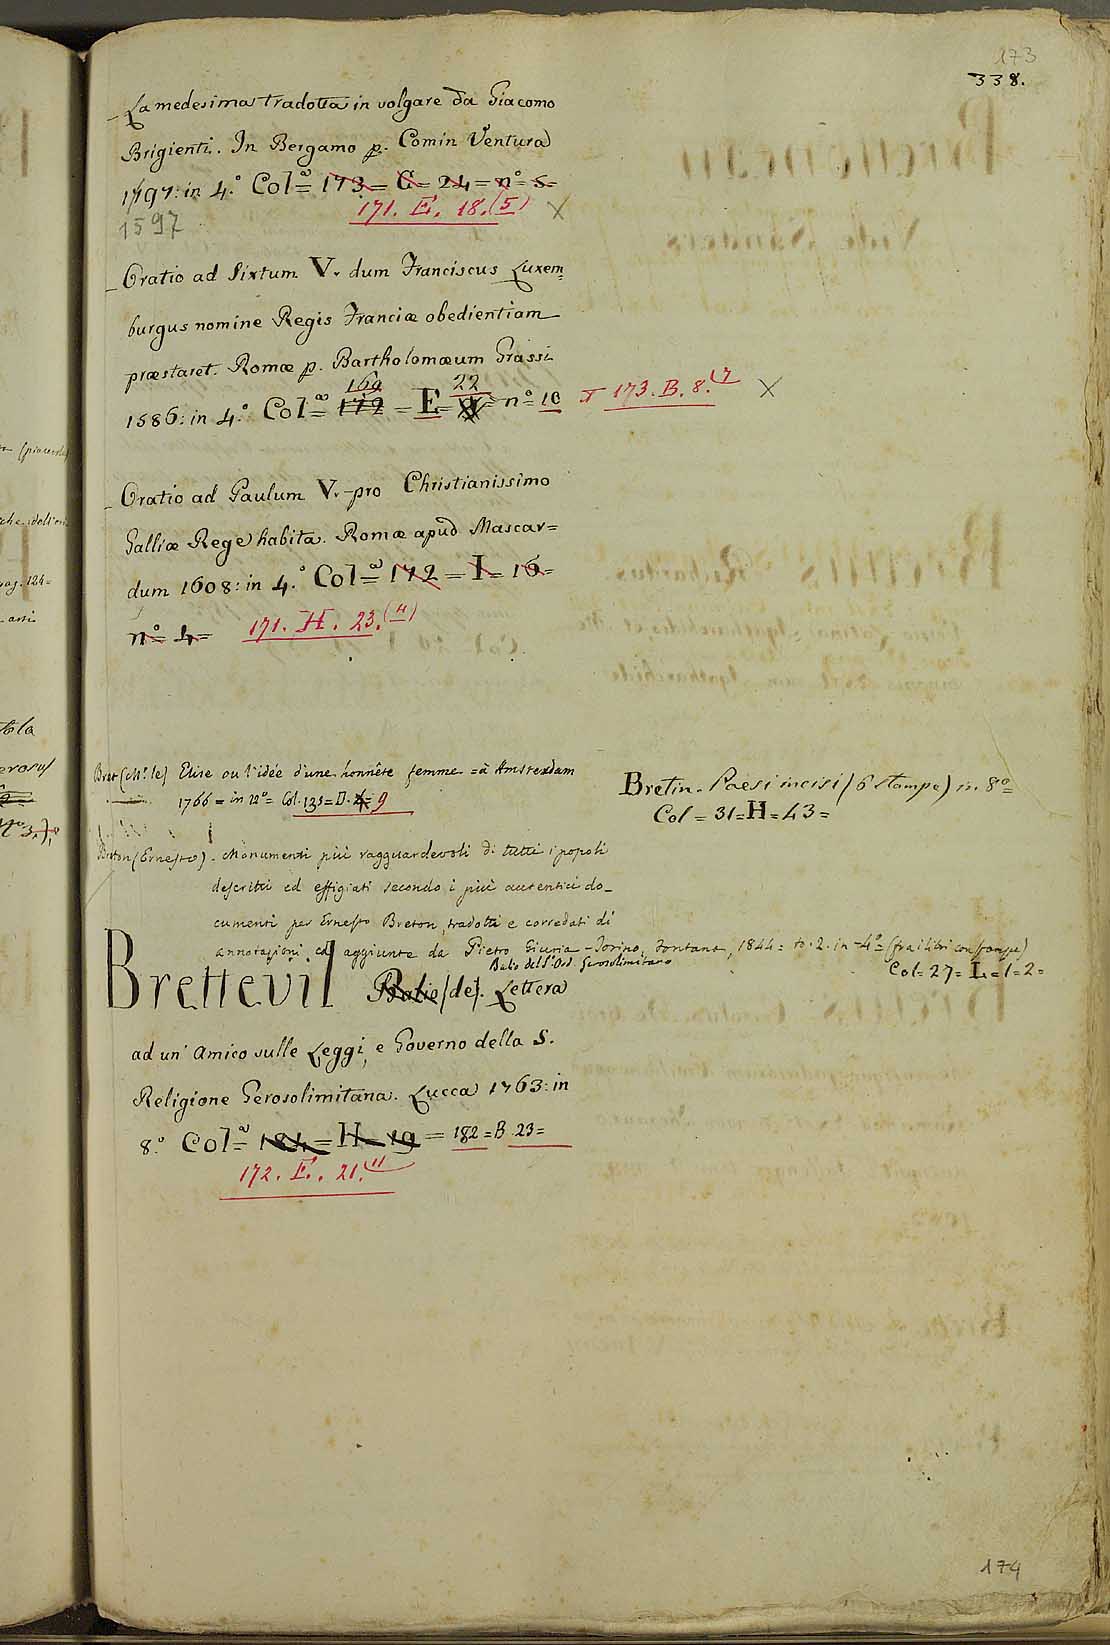 173
338.
La medesima tradotta in volgare da Giacomo
Brigienti. In Bergamo p. Comin Ventura
1797: in 4.° Col.ª 173 = C = 24 = n° 5 =
1597
171. E. 18.(5) X
Oratio ad Sixtum V. dum Franciscus Luxem=
burgus nomine Regis Franciæ obedientiam
præstaret. Romæ p. Bartholomæum Grassi
169 22
1586: in 4.° Col.ª 172 = E = = n° 10 173. B. 8.(7 X
Oratio ad Paulum V. pro Christianissimo
Galliæ Rege habita. Romæ apud Mascar=
dum 1608: in 4.° Col.ª 172 = I = 16 =
n° 4 = 171. H. 23.(4)
Bret (Mr. le) Elise ou l'idée d'une honnête femme = à Amsterdam
1766 = in 12° = Col. 135 = D. 9
Bretin. Paesi incisi (6 stampe) in 8° =
Col = 31 = H = 43 =
Breton (Ernesto). Monumenti più ragguardevoli di tutti i popoli
descritti ed effigiati secondo i più autentici do_
cumenti per Ernesto Breton, tradotti e corredati di
annotazioni, ed aggiunte da Pietro Giuria - Torino, Fontana, 1844 = to. 2. in 4° = (fra i libri con stampe)
Col = 27 = L = 1 = 2 =
Balio dell'Ord. Gerosolimitano
Brettevil Balio (de). Lettera
ad un' Amico sulle Leggi, e Governo della S.
Religione Gerosolimitana. Lucca 1763: in
8.° Col.ª 184 = H 19 = 182 = B. 23 =
172. E. 21.11
174